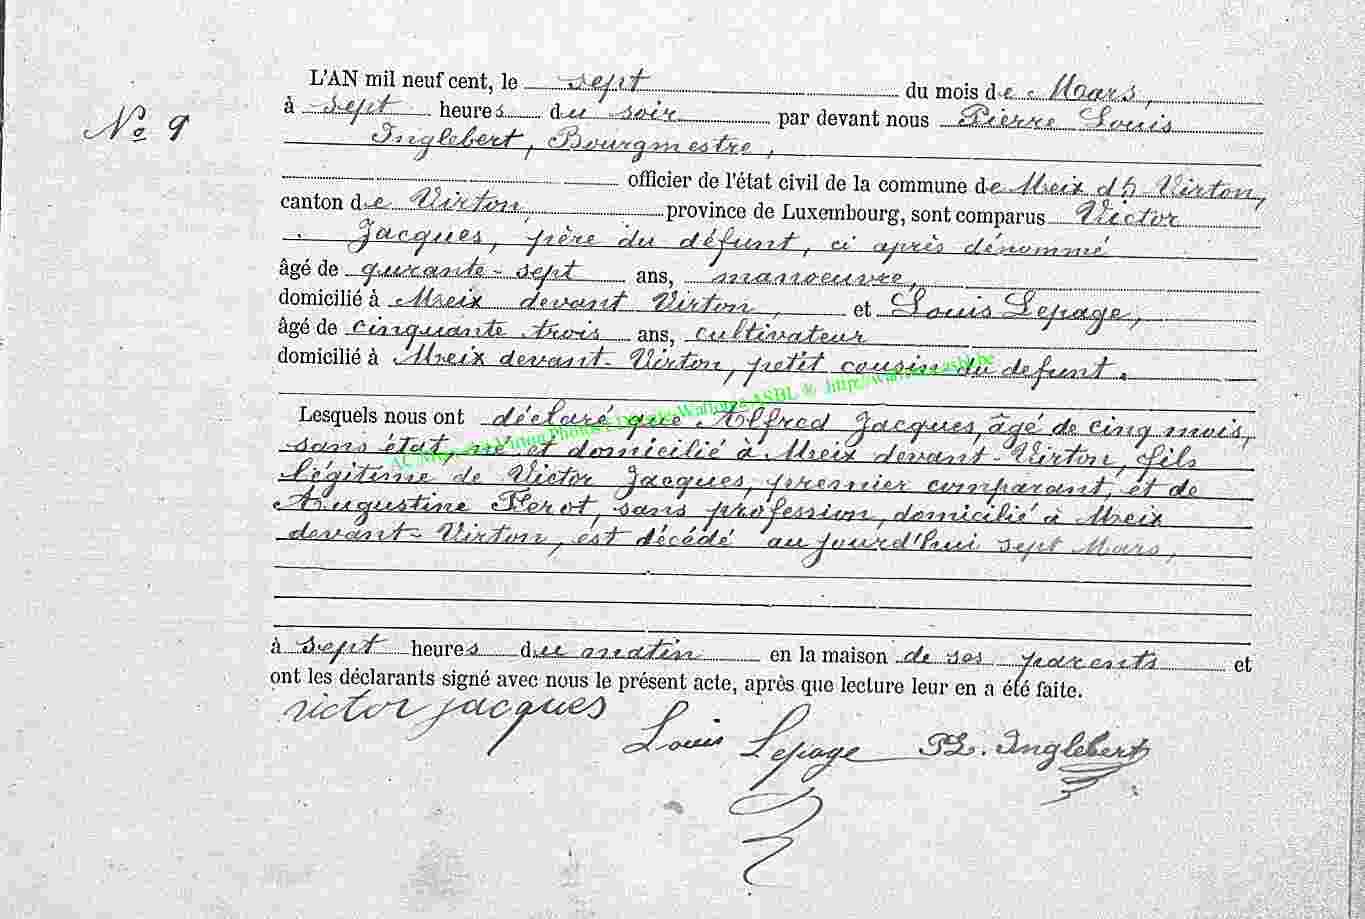 L'AN mil neuf cent, le sept du mois de Mars,
No 9
à sept heures du soir par devant nous Pierre Louis
Inglebert, Bourgmestre,
officier de l'état civil de la commune de Meix dt Virton,
canton de Virton, province de Luxembourg, sont comparus Victor
Jacques, père du défunt, ci après dénommé
âgé de qurante-sept ans, manoeuvre,
domicilié à Meix devant Virton, et Louis Lepage,
âgé de cinquante trois ans, cultivateur
domicilié à Meix devant-Virton, petit cousin du defunt.
Lesquels nous ont déclaré que Alfred Jacques, âgé de cinq mois,
sans état, né et domicilié à Meix devant-Virton, fils
légitime de Victor Jacques, premier comparant, et de
Augustine Ferot, sans profession, domicilié à Meix
devant-Virton, est décédé aujourd'hui sept Mars,
à sept heures du matin en la maison de ses parents et
ont les déclarants signé avec nous le présent acte, après que lecture leur en a été faite.
victor jacques
Louis Lepage PL. Inglebert